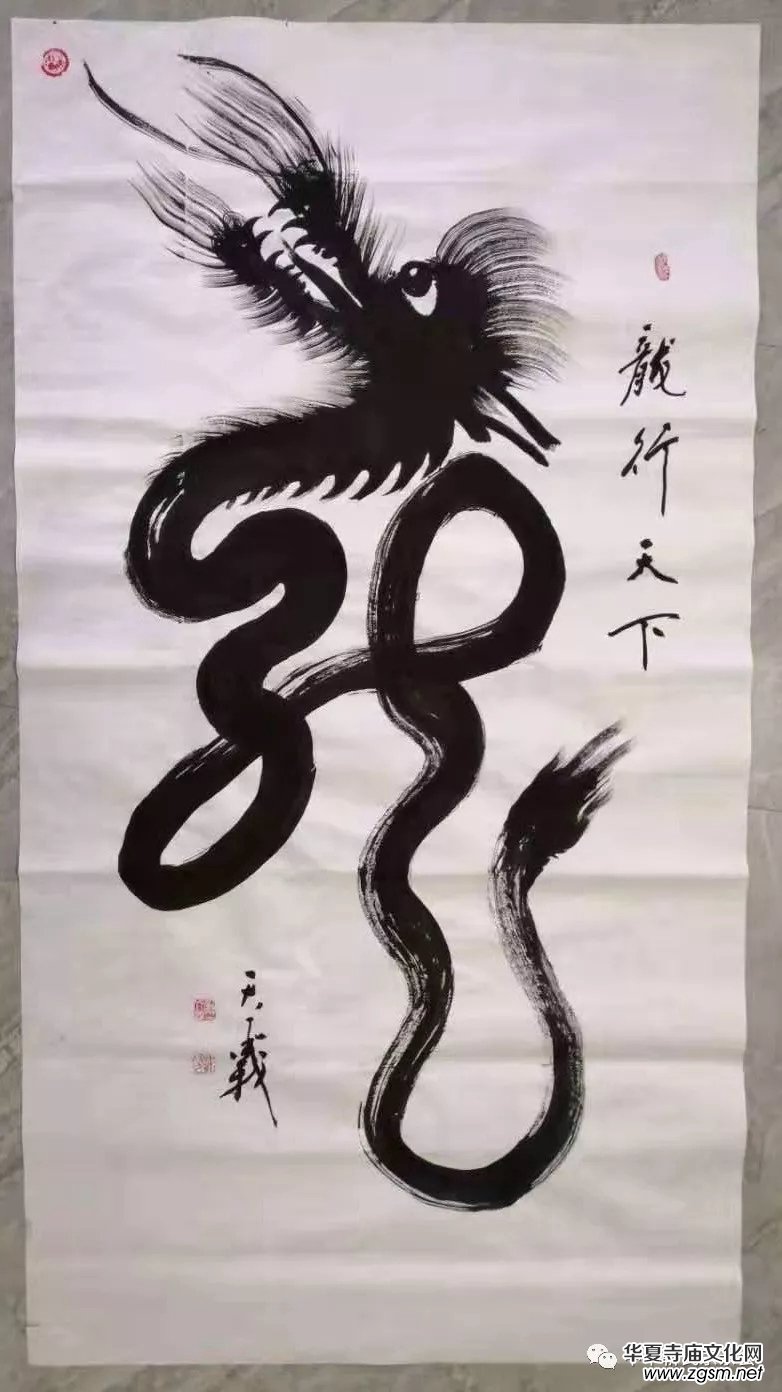 龍行天下
天義
华夏寺庙文化网
www.zgsm.net